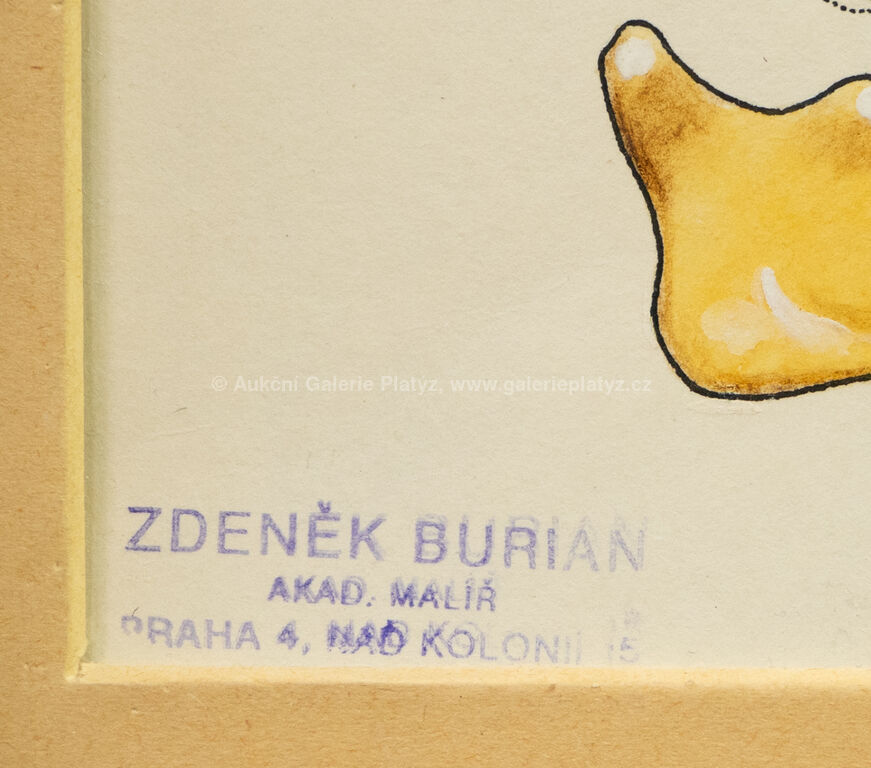 © Aukční Galerie Platyz, www.galerieplatyz.cz
ZDENĚK BURIAN
AKAD. MALÍŘ
PRAHA 4, NAD KOLONIÍ 15